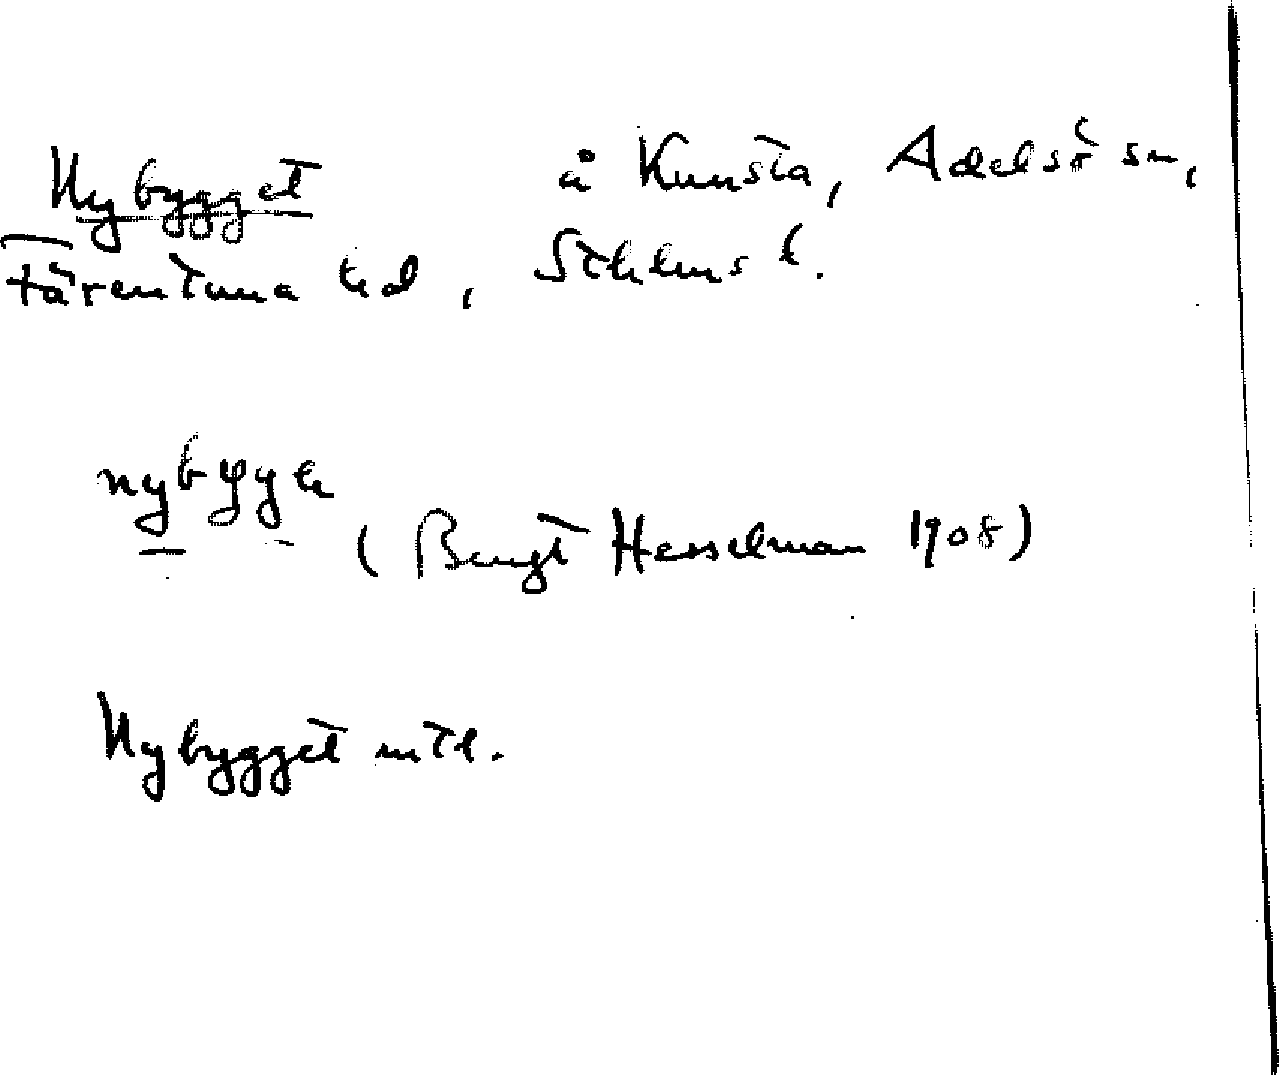 Nybygget å Kunsta, Adelsö sn,
Färentuna hd, Sthlms l.
(Bengt Hesselman 1908)
Nybygget mtl.